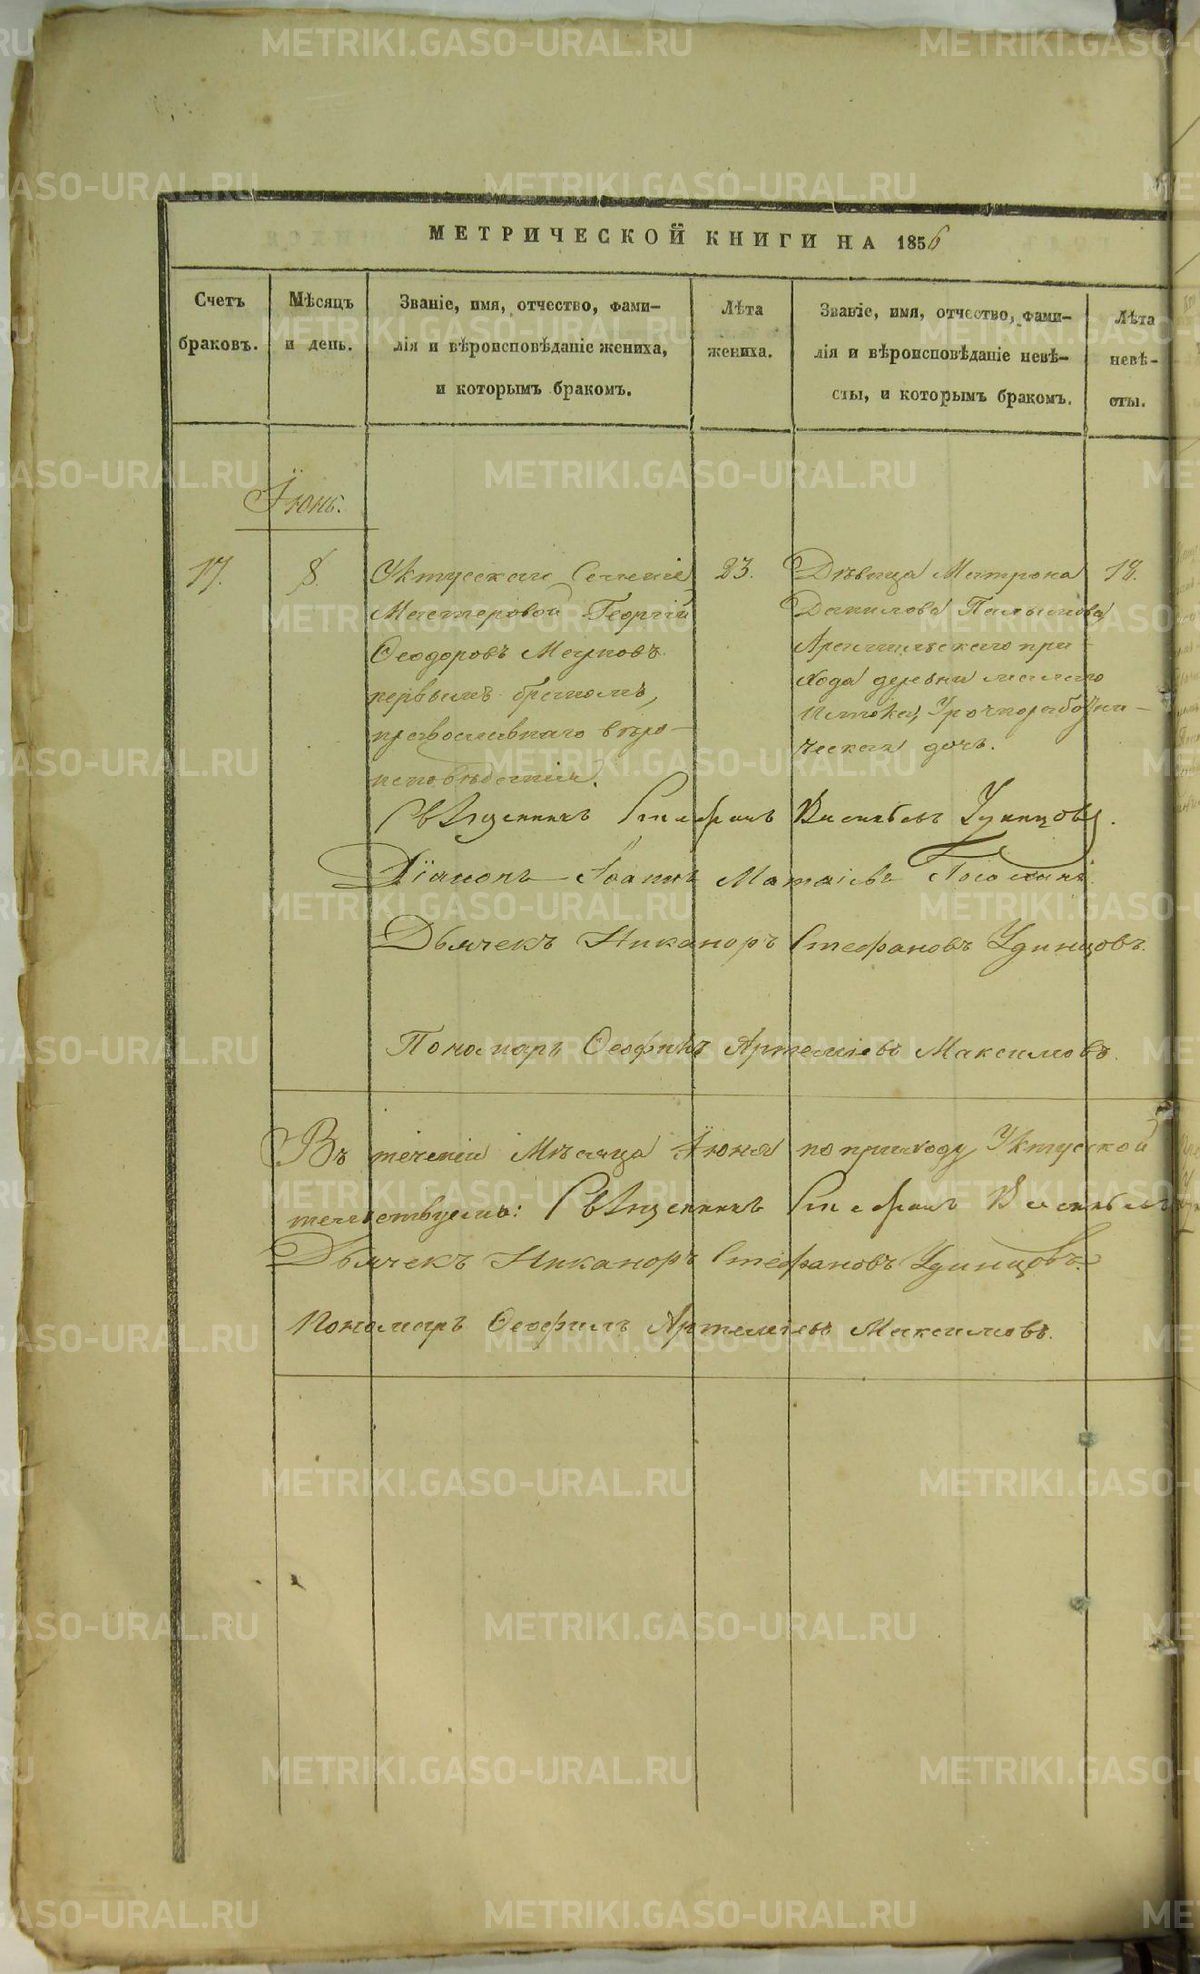 МЕТРИЧЕСКОЙ КНИГИ НА 1856
Счетъ браковъ.
Мѣсяцъ и день.
Званіе, имя, отчество, фами-
лія и вѣроисповѣданіе жениха,
и которымъ бракомъ.
Лѣта жениха.
Званіе, имя, отчество, фами-
лія и вѣроисповѣданіе невѣ-
сты, и которымъ бракомъ.
Лѣта невѣ-
сты.
Іюнь.
17.
8
Уктускаго Селенія
Мастеровой Георгій
Ѳеодоровъ
первымъ бракомъ,
православнаго вѣро-
исповѣданія.
23.
Дѣвица Матрона
Данилова
Арамильскаго при-
хода деревни малаго
Истока, Урочноработни-
ческая дочь.
18.
Священникъ Стефанъ Васильевъ Удинцовъ.
Діаконъ Іоаннъ
Дьячекъ Никаноръ Стефановъ Удинцовъ.
Пономарь Ѳеофилъ Артеміевъ Максимовъ.
Въ теченіи Мѣсяца Іюня по приходу Уктуской
Священникъ Стефанъ Васильевъ
Дьячекъ Никаноръ Стефановъ Удинцовъ.
Пономарь Ѳеофилъ Артеміевъ Максимовъ.
METRIKI.GASO-URAL.RU